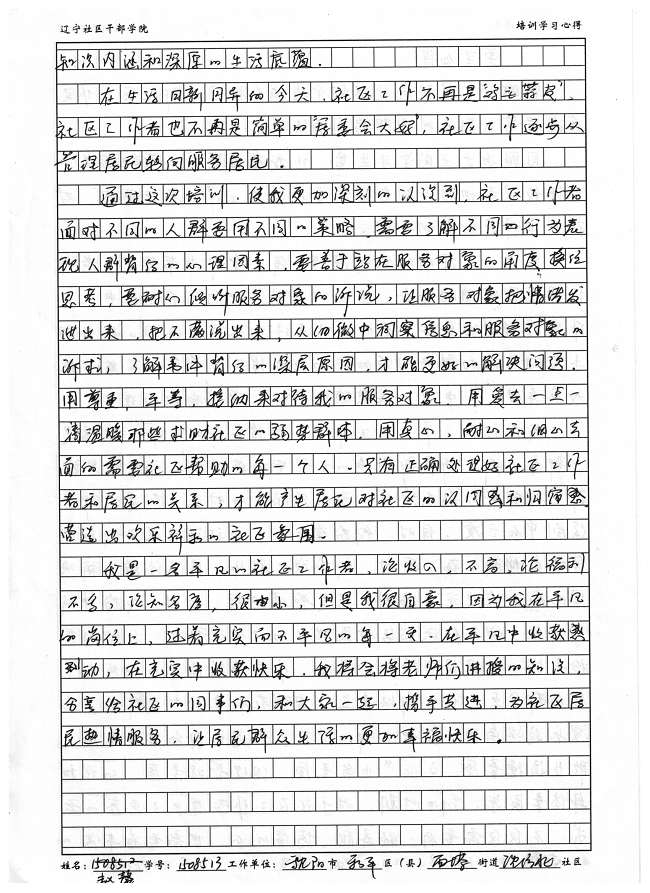 辽宁社区干部学院 培训学习心得
知次内涵和深厚的生活底蕴.
在生活日新月异的今天,社区工作不再是"鸡毛蒜皮",
社区工作者也不再是简单的"居委会大妈",社区工作逐步从
管理居民转向服务居民.
通过这次培训,使我更加深刻的认识到,社区工作者
面对不同的人群要用不同的策略,需要了解不同的行为表
现人群背后的心理因素,要善于站在服务对象的角度换位
思考,要耐心倾听服务对象的诉说,让服务对象把情绪发
泄出来,把不满说出来,从细微中洞察信息和服务对象的
诉求,了解事件背后的深层原因,才能更好的解决问题.
用尊重,平等,接纳来对待我的服务对象,用爱去一点一
滴温暖那些求助社区的弱势群体,用真心,耐心和细心去
面的需要社区帮助的每一个人.只有正确处理好社区工作
者和居民的关系,才能产生居民对社区的认同感和归宿感
营造出欢乐祥和的社区氛围.
我是一名平凡的社区工作者,论收入,不高,论福利
不多,论知名度,很小,但是我很自豪,因为我在平凡
的岗位上,过着充实而不平凡的每一天.在平凡中收获感
动,在充实中收获快乐.我将会将老师们讲授的知识,
分享给社区的同事们,和大家一起,携手共进,为社区居
民热情服务,让居民群众生活的更加幸福快乐.
姓名: 1508512 学号: 1508513 工作单位: 沈阳市 和平区(县) 西塔街道 社区